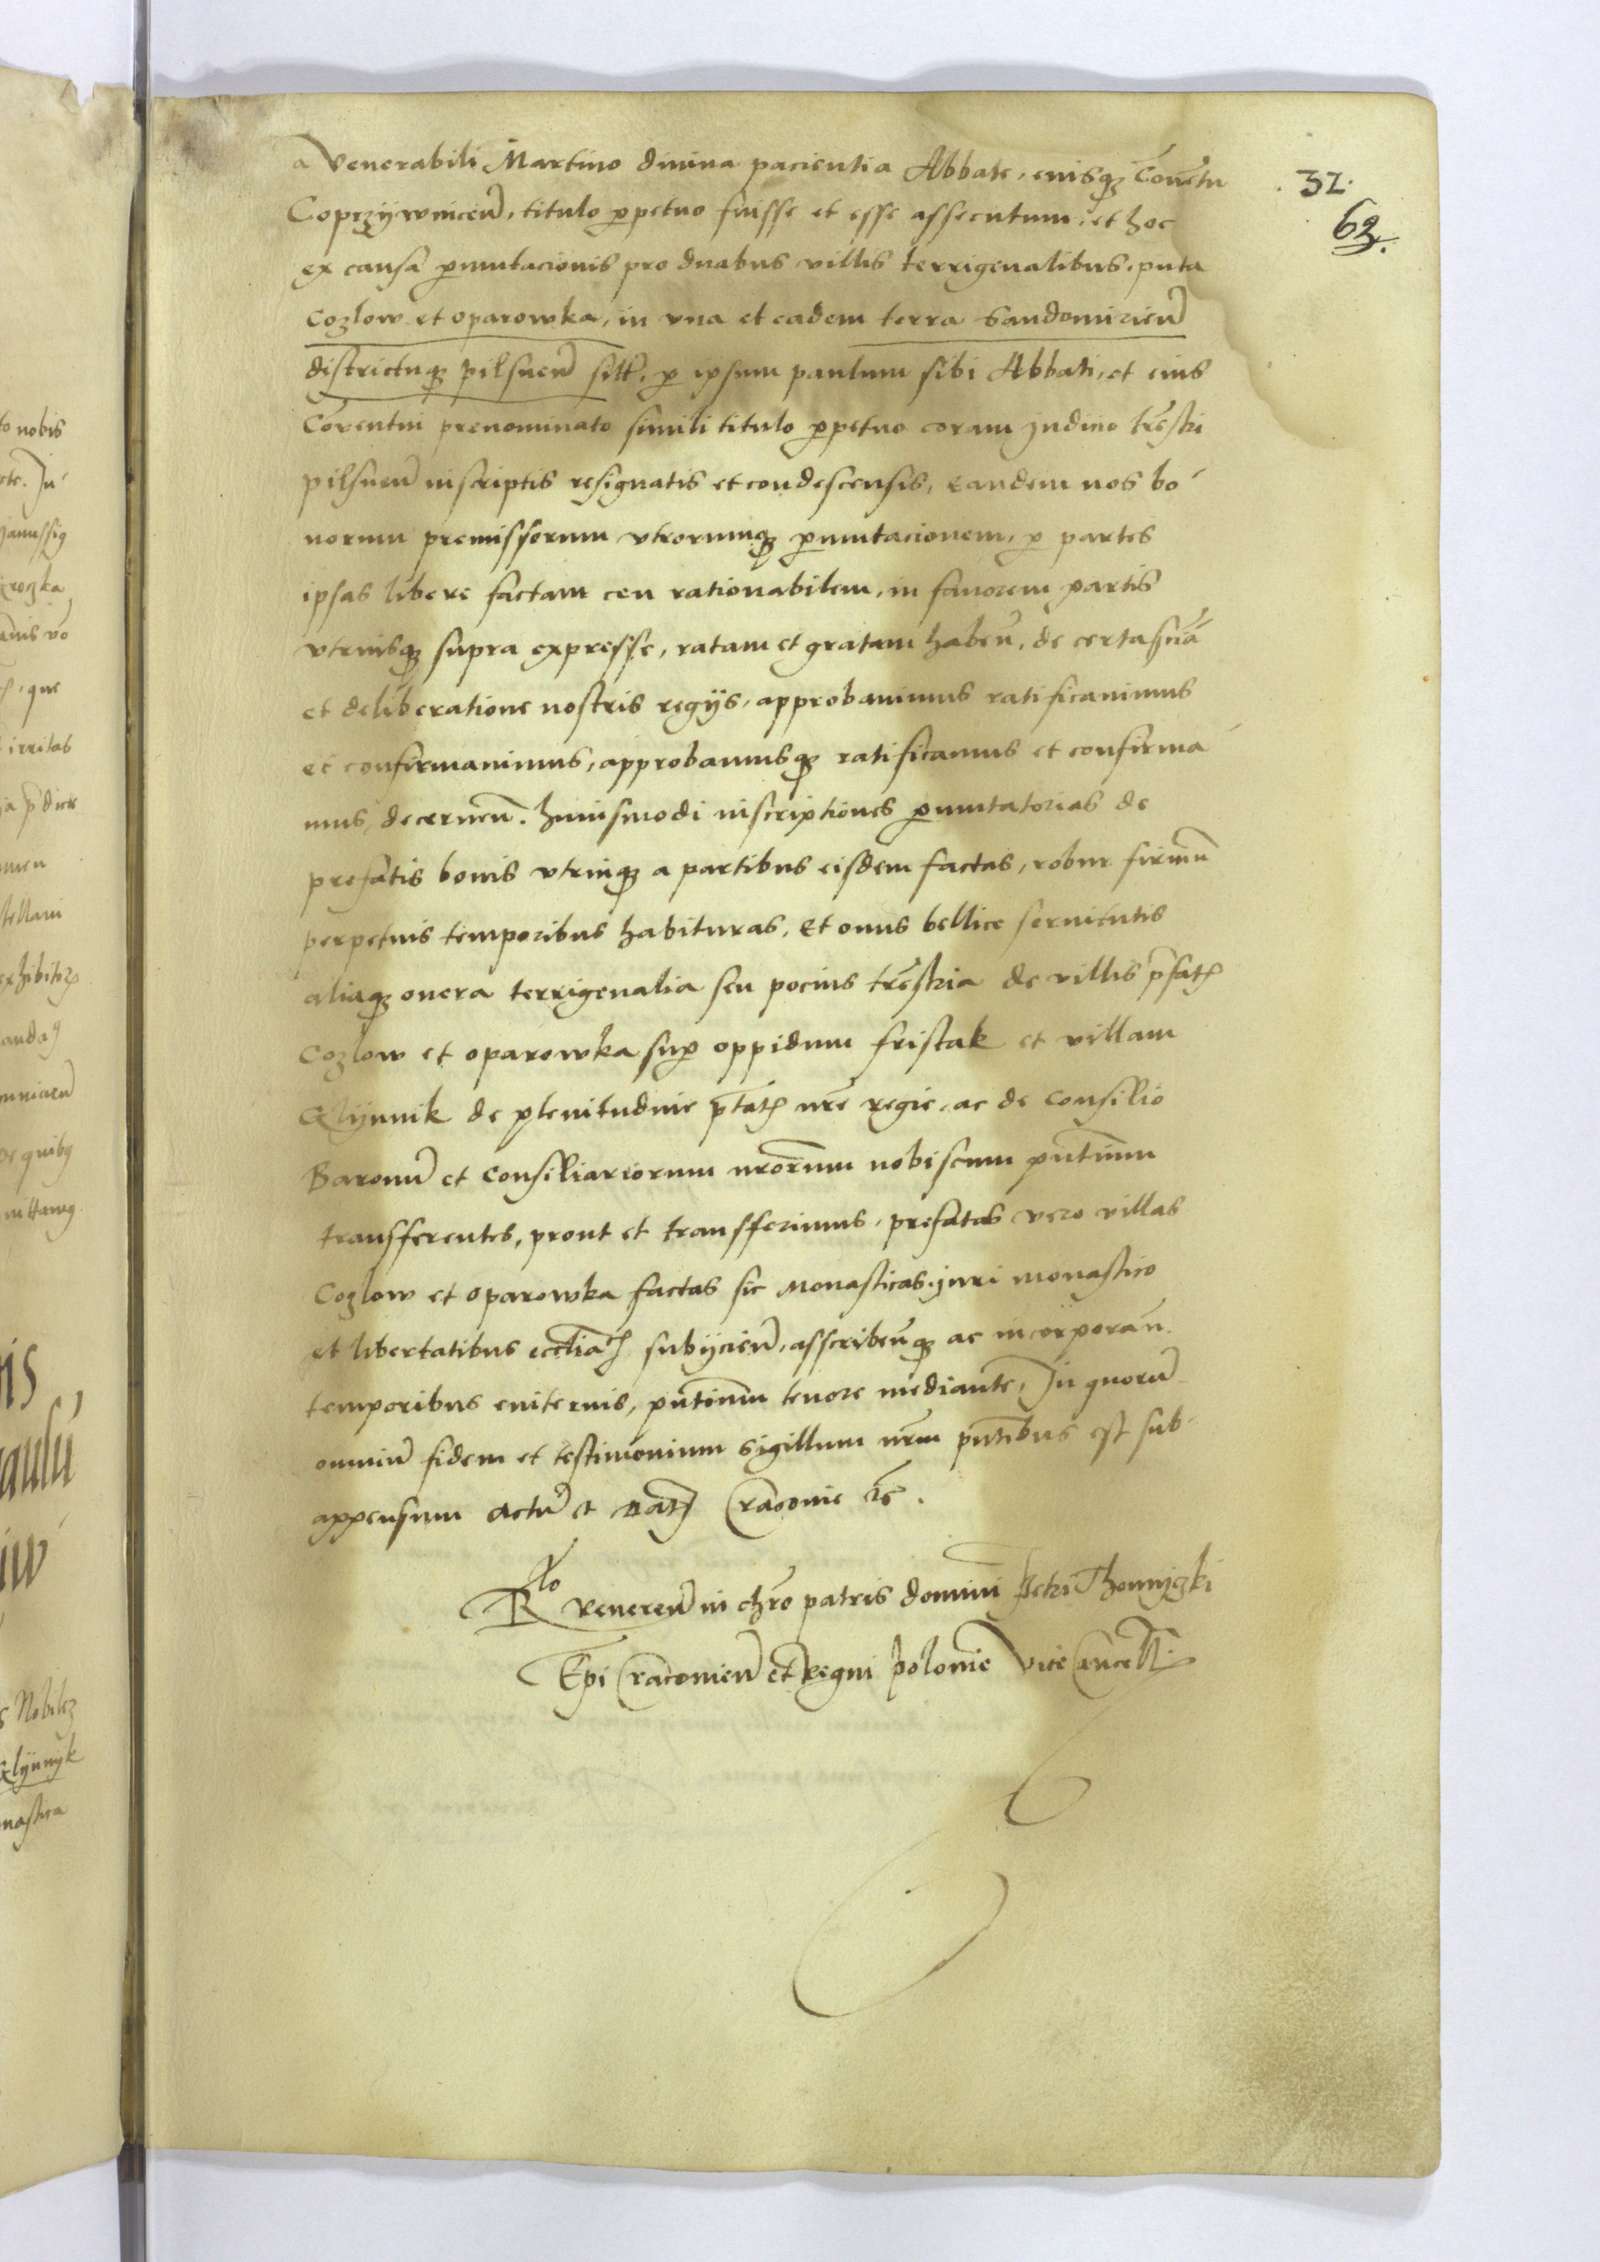 32.
62.
a Venerabili Martino divina pacientia Abbate, eiusq̄ Convetu
Coprzywnicen̄, titulo ꝑpetuo fuisse et esse assecutum, et hoc
ex causa ꝑmutacionis pro duabus villis terrigenalibus, puta
Cozlow et Oparowka, in vna et eadem terra Sandomirien̄
districtuq̄ pilsnen̄ sitis, ꝑ ipsum paulum sibi Abbati, et eius
Conventui prenominato simili titulo ꝑpetuo coram Judicio tr̄estri
pilsnen̄ inscriptis resignatis et condescensis, eandem nos bo
norum premissorum vtrorumq̄ ꝑmutacionem, ꝑ partes
ipsas libere factam ceu rationabilem, in favorem partis
vtriusq̄ supra expresse, ratam et gratam haben̄, de certa sn̄a
et deliberatione nostris regijs, approbavimus ratificavimus
et confirmavimus, approbamusq̄ ratificamus et confirma
mus, decernen̄. huiusmodi inscriptiones ꝑmutatorias de
prefatis bonis vtrinq̄ a partibus eisdem factas, robur firmū
perpetuis temporibus habituras, Et onus bellice servitutis
aliaq̄ onera terrigenalia seu pocius tr̄estria de villis p̄fatꝭ
Cozlow et oparowka suꝑ oppidum fristak et villam
Glijnnik de plenitudine p̄tatꝭ nr̄e regie, ac de consilio
Baronū et Consiliariorum nr̄orum nobiscum pn̄tium
transferentes, prout et transferimus, prefatas vero villas
Cozlow et Oparowka factas sic Monasticas, juri monastico
et libertatibus eccl̄iaꝝ subijcien̄, asscriben̄q̄ ac incorporan̄
temporibus eviternis, pn̄tium tenore mediante, In quorū
omniū fidem et testimonium Sigillum nr̄um pn̄tibus est sub
appensum Actū et Datꝭ Cracovie etc.
Rlo reveren̄ in chr̄o patris domini Petri Thomijczki
Epi Cracovien̄ et Regni Polonie Vice Cancell.